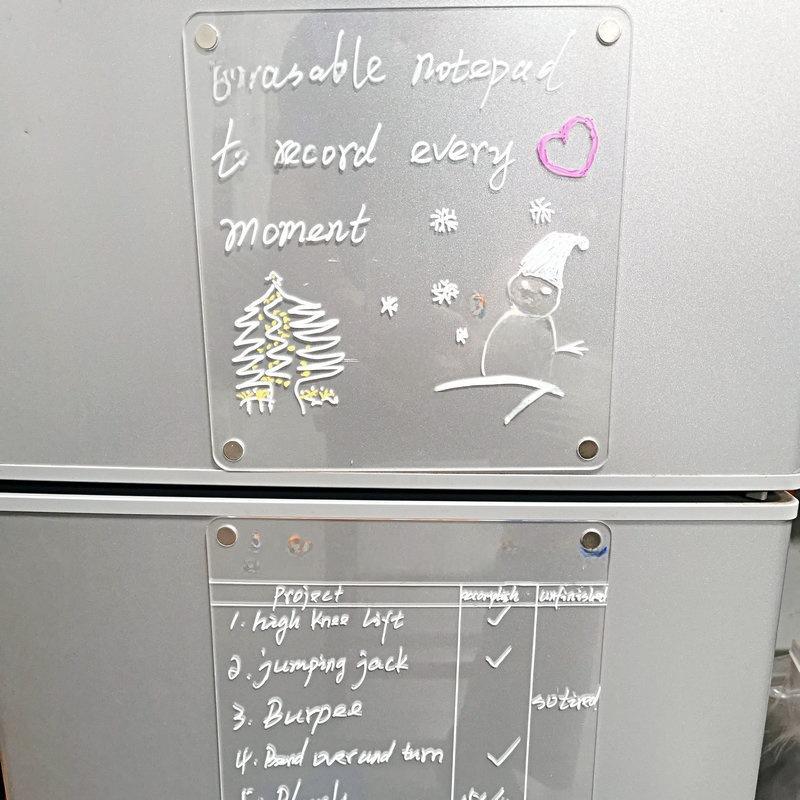 Erasable notepad
to record every
moment
Project accomplish unfinished
1. high knee lift ✓
2. jumping jack ✓
3. Burpee so tired
4. Bend over and turn ✓
5. Plank